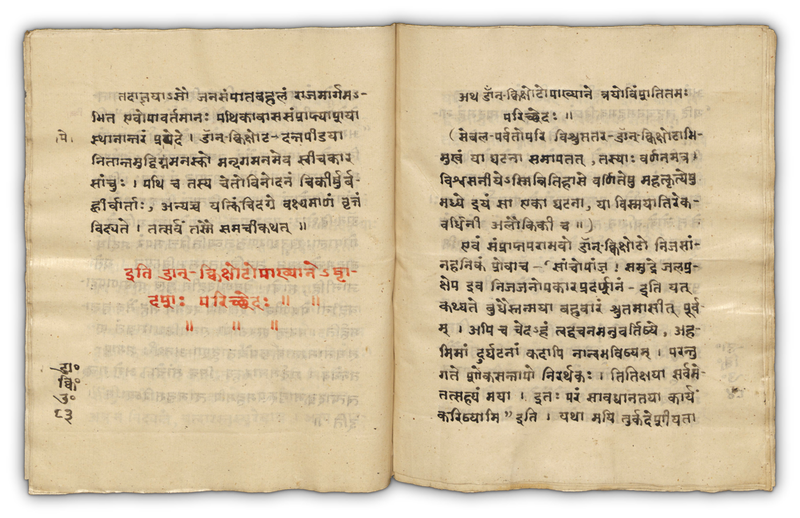 तदाज्ञयाऽसौ जनसंपातबहुलं राजमार्गम-
भित एवोपावर्तमानः पथिकावाससंप्राप्त्याप्राया
पे०
स्थानान्तरं प्रपेदे । डॉन्-क्विक्षोट-दन्तपीडया
नितान्तमुद्विग्नमनस्को मन्दगमनमेव स्वीचकार
सांचुः । पथि च तस्य चेतोविनोदनं चिकीर्षुर्व-
ह्वीर्वार्ताः, अन्यच्च यत्किंचिदग्रे वक्ष्यमाणं वृत्तं
विद्यते । तत्सर्वं तस्मै समचीकथत् ॥
इति डॉन्-क्विक्षोटोपाख्यानेऽष्टा-
दशः परिच्छेदः ॥ ॥
॥ ॥ ॥
डा०
क्वि०
उ०
८३
अथ डॉन्-क्विक्षोटोपाख्याने त्रयोविंशतितमः
परिच्छेदः ॥
(सेबल-पर्वतोपरि विश्रुततर-डॉन्-क्विक्षोटाभि-
मुखं या घटना समापतत्, तस्याः वर्णनमत्र।
विश्वसनीयेऽस्मिन्नितिहासे वर्णितेषु महत्कृत्येषु
मध्ये इयं सा एका घटना, या विस्मयातिरेक-
वर्धिनी अलौकिकी च ॥)
एवं संप्राप्तपराभवो डॉन्-क्विक्षोटो निजसां-
नहनिकं प्रोवाच - “सांचोपांज! समुद्रे जलप्र-
क्षेप इव निजजनोपकारप्रदर्शनं - इति यत्
कथ्यते बुधैस्तन्मया बहुवारं श्रुतमासीत् पूर्व-
म् । अपि च चेदहं त्वद्वचनमनुवर्तिष्ये, अह-
मिमां दुर्घटनां कदापि नान्वभविष्यम् । परन्तु
गते शोकसन्तापो निरर्थकः । तितिक्षया सर्वमे-
तत्सह्यं मया । इतः परं सावधानतया कार्यं
करिष्यामि” इति । यथा मयि तुर्कदेशीयता